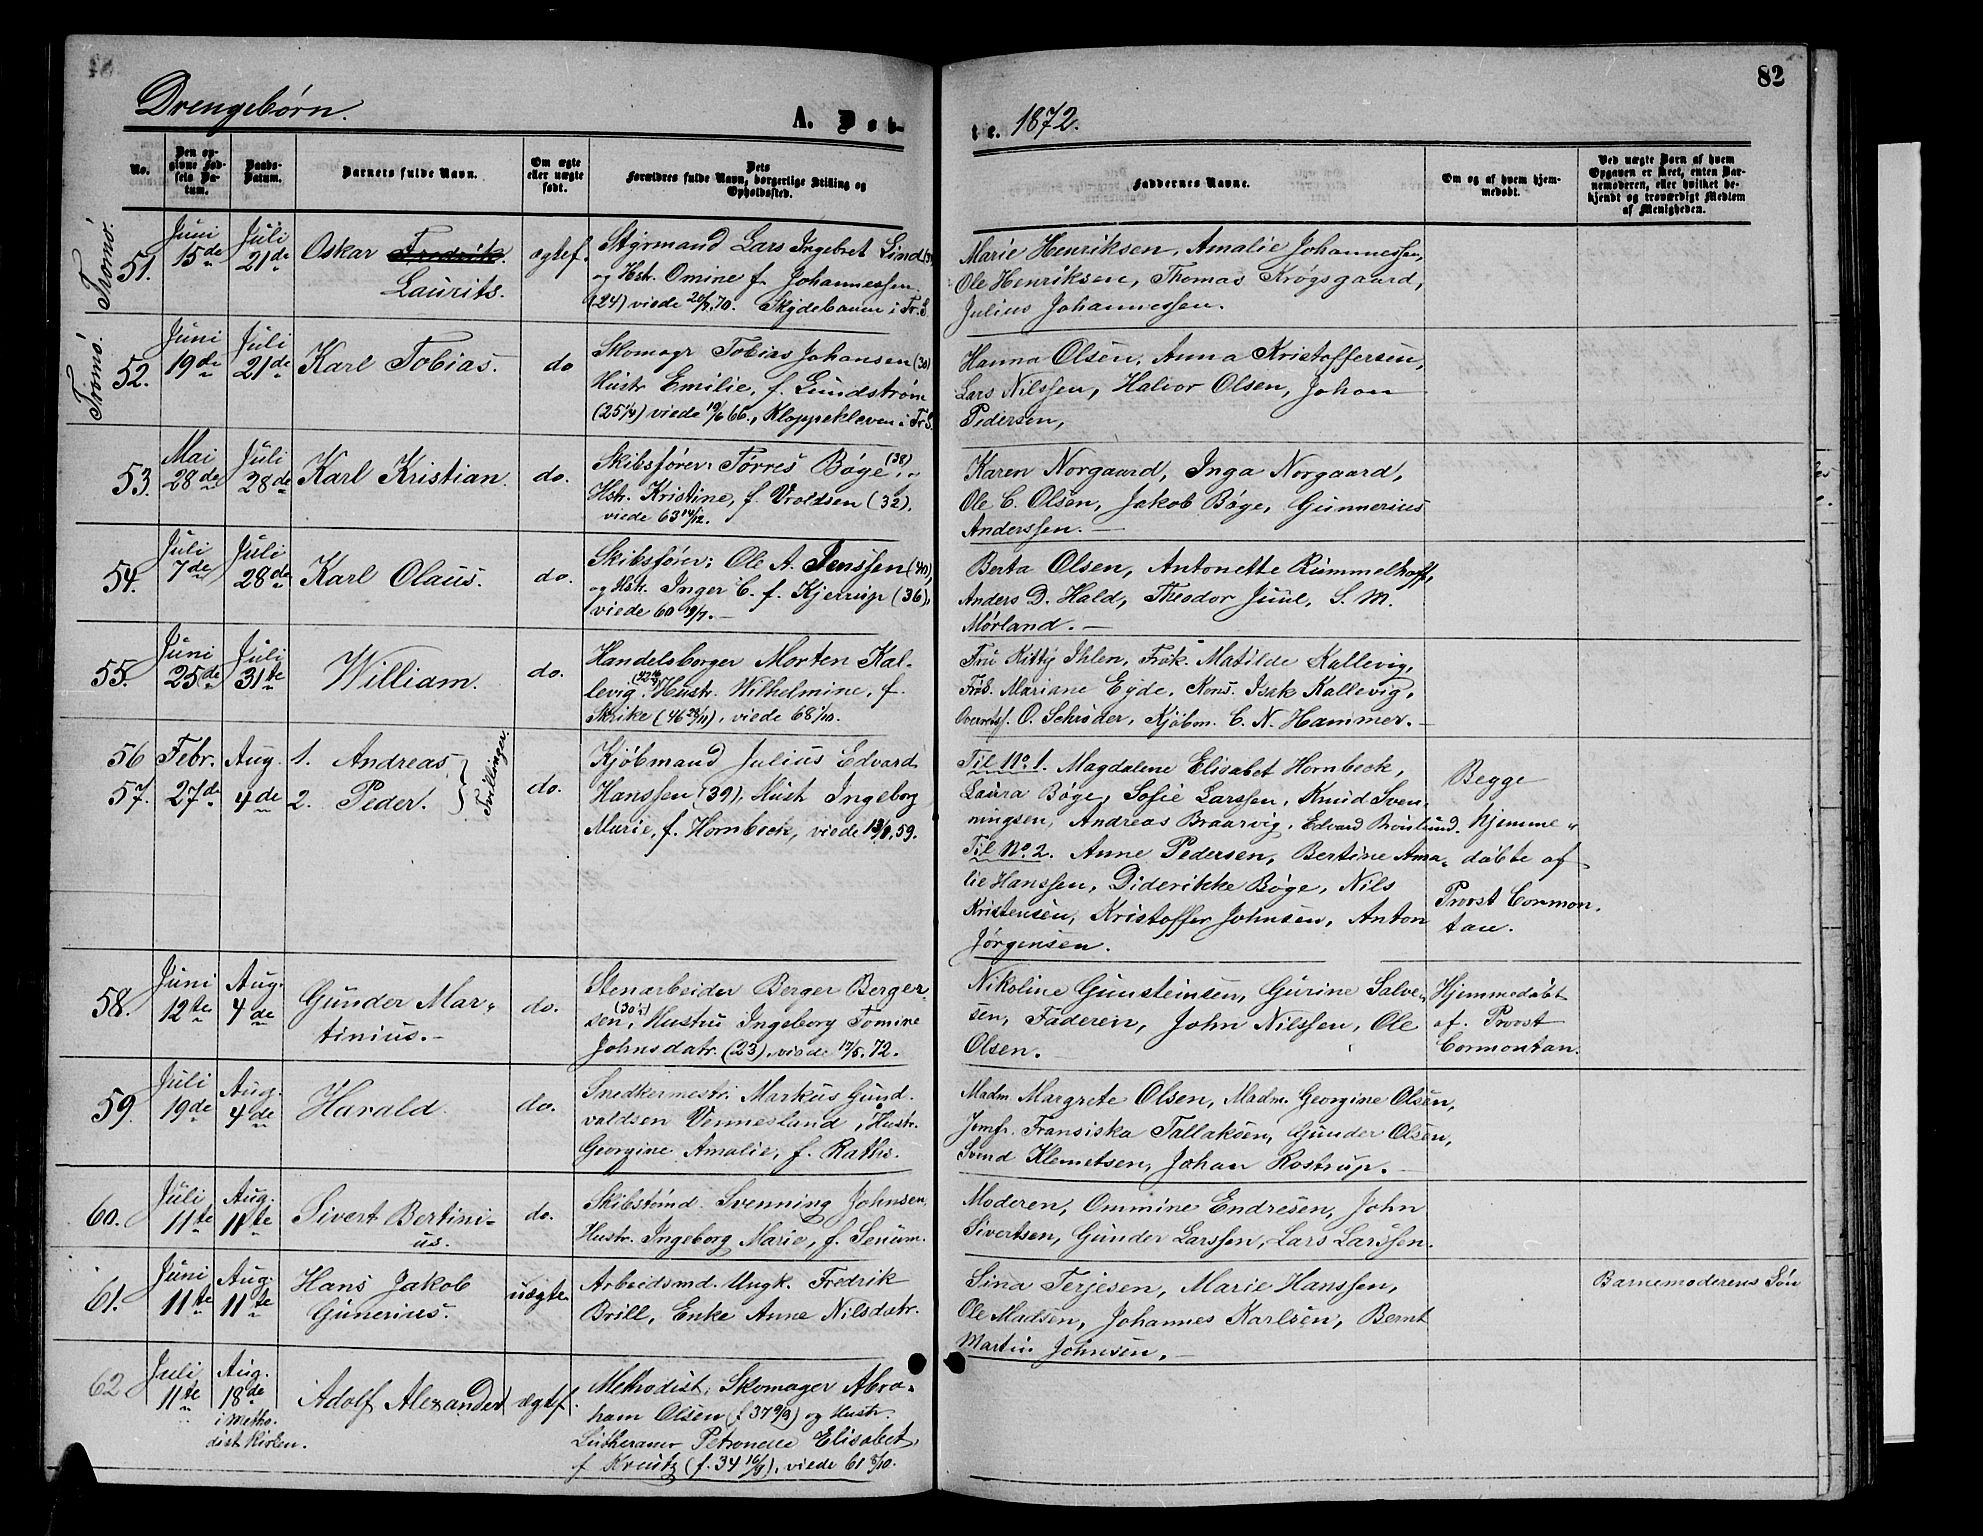 82
Drengebørn. A. Døb-
te. 1872.
No.
Den opgivne Fødsels Datum.
Daabs-Datum.
Barnets fulde Navn.
Om ægte eller uægte født.
Dets Forældres fulde Navn, borgerlige Stilling og Opholdssted.
Faddernes Navne.
Om og af hvem hjemmedøbt.
Ved uægte Børn af hvem Opgaven er skeet, enten Barnemoderen, eller hvilket bekjendt og troværdigt Medlem af Menigheden.
Tromø.
51. Juni 15de Juli 21de Oskar Fredrik. Laurits. ægtef.
Styrmand Lars Ingebret Lind
og Hst. Omine f. Johannessen.
(24) viede 20/9.70. Skydebanen i Tr.S.
Marie Henriksen, Amalie Johannessen,
Ole Henriksen, Thomas Krøgsgaard,
Julius Johannessen.
Tromø.
52. Juni 19de Juli 21de Karl Tobias. do
Skomagr Tobias Johansen (30)
Hustr Emilie, f. Lundstrøm
(25 1/4) viede 19/6 66., Kloppekleven i Tr.S.
Hanna Olsen, Anna Kristoffersen,
Lars Nilssen, Halvor Olsen, Johan
Pedersen,
53. Mai 28de Juli 28de Karl Kristian. do.
Skibsfører: Tørres Bøge, (38)
Hstr. Kristine, f. Vroldsen (32),
viede 63 14/12.
Karen Norgaard, Inga Norgaard,
Ole C. Olsen, Jakob Bøge, Gunnerius
Anderssen. —
54. Juli 7de Juli 28de Karl Olaus. do.
Skibsfører: Ole A. Jenssen (40),
og Hst. Inger C. f. Kjerrup (36),
viede 60 19/7. —
Berta Olsen, Antonette Rummelhoff,
Anders D. Hald, Theodor Juul, S. M.
Mørland. —
55. Juni 25de Juli 31te William. do.
Handelsborger Morten Kal-
levig, Hustr. Wilhelmine, f.
Skrike (46 28/11), viede 68 1/10.
Fru Kitty Ihlen, Frøk. Matilde Kallevig,
Frøk. Mariane Eyde, Kons. Isak Kallevig,
O. Schrøder, Kjøbm. C. N. Hammer. —
56 57. Febr. 27de Aug. 4de
1. Andreas
2. Peder. Tvillinger. do.
Kjøbmand Julius Edvard
Hanssen (39), Hust Ingeborg
Marie, f. Hornbeck, viede 13/9.59.
Til No. 1. Magdalene Elisabet Hornbeck,
Laura Bøge, Sofie Larssen, Knud Sven-
ningsen, Andreas Braarvig, Edvard Brønlund.
Til No. 2. Anne Pedersen, Bertine Ama-
lie Hanssen, Diderikke Bøge, Nils
Kristensen, Kristoffer Johnsen, Anton
Jørgensen.
Begge
hjemme-
døbte af
Provst Cormon-
tan.
58. Juni 12te Aug. 4de Gunder Mar-
tinius. — do.
Stenarbeider Berger Berger-
sen, (30 1/2) Hustru Ingeborg Tomine
Johnsdatr. (23), viede 17/5.72.
Nikoline Gunsteinsen, Gurine Salve-
sen, Faderen, John Nilssen, Ole
Olsen. —
Hjemmedøbt
af Provst
Cormontan.
59. Juli 19de Aug. 4de Harald. do.
Snedkermestr. Markus Gund-
valdsen Vennesland, Hustr.
Georgine Amalie, f. Raths.
Madm Margrete Olsen, Madm. Georgine Olsen,
Jomfr. Fransiska Tallaksen, Gunder Olsen,
Svend Klemetsen, Johan Rostrup. —
60. Juli 11te Aug. 11te Sivert Bertini-
us. do.
Skibstømd. Svenning Johnsen,
Hustr. Ingeborg Marie, f. Senum.
Moderen, Ommine Endresen, John
Sivertsen, Gunder Larssen, Lars Larssen.
61. Juni 11te Aug. 11te Hans Jakob
Gunerius. uægte
Arbeidsmd. Ungk. Fredrik
Brill, Enke Anne Nilsdatr.
Sina Terjesen, Marie Hanssen,
Ole Madsen, Johannes Karlsen, Bernt
Martin Johnsen. —
Barnemoderens Søn
62 Juli 11te Aug. 18de
i Metho-
dist Kirken.
Adolf Alexander ægtef.
Methodist: Skomager Abra-
ham Olsen (f 37 9/9) og Hustr.
Lutheraner Petronelle Elisabet,
f. Kreutz (f. 34 16/9), viede 61 8/10.